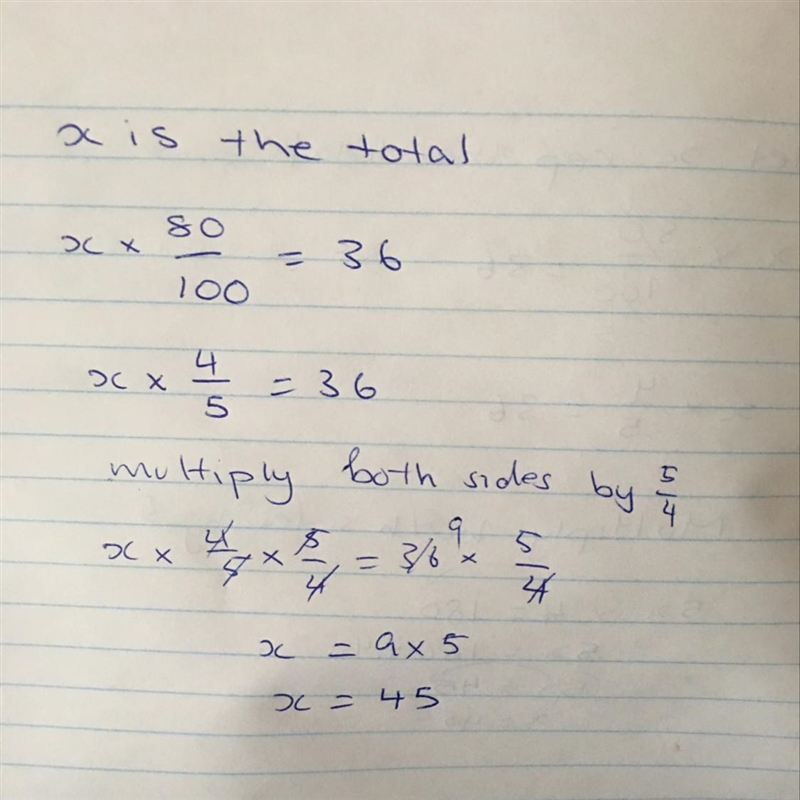 x is the total
x × 80/100 = 36
x × 4/5 = 36
multiply both sides by 5/4
x × 4/5 × 5/4 = 36 9 × 5/4
x = 9 × 5
x = 45